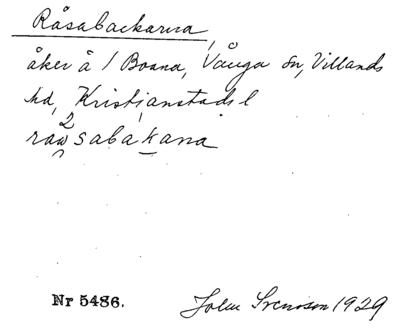 Råsabackarna,
åker å 1 Boana, Vånga sn, Villands
hd, Kristianstads l
2
rawsabakana
Nr 5486.
John Svensson 1929